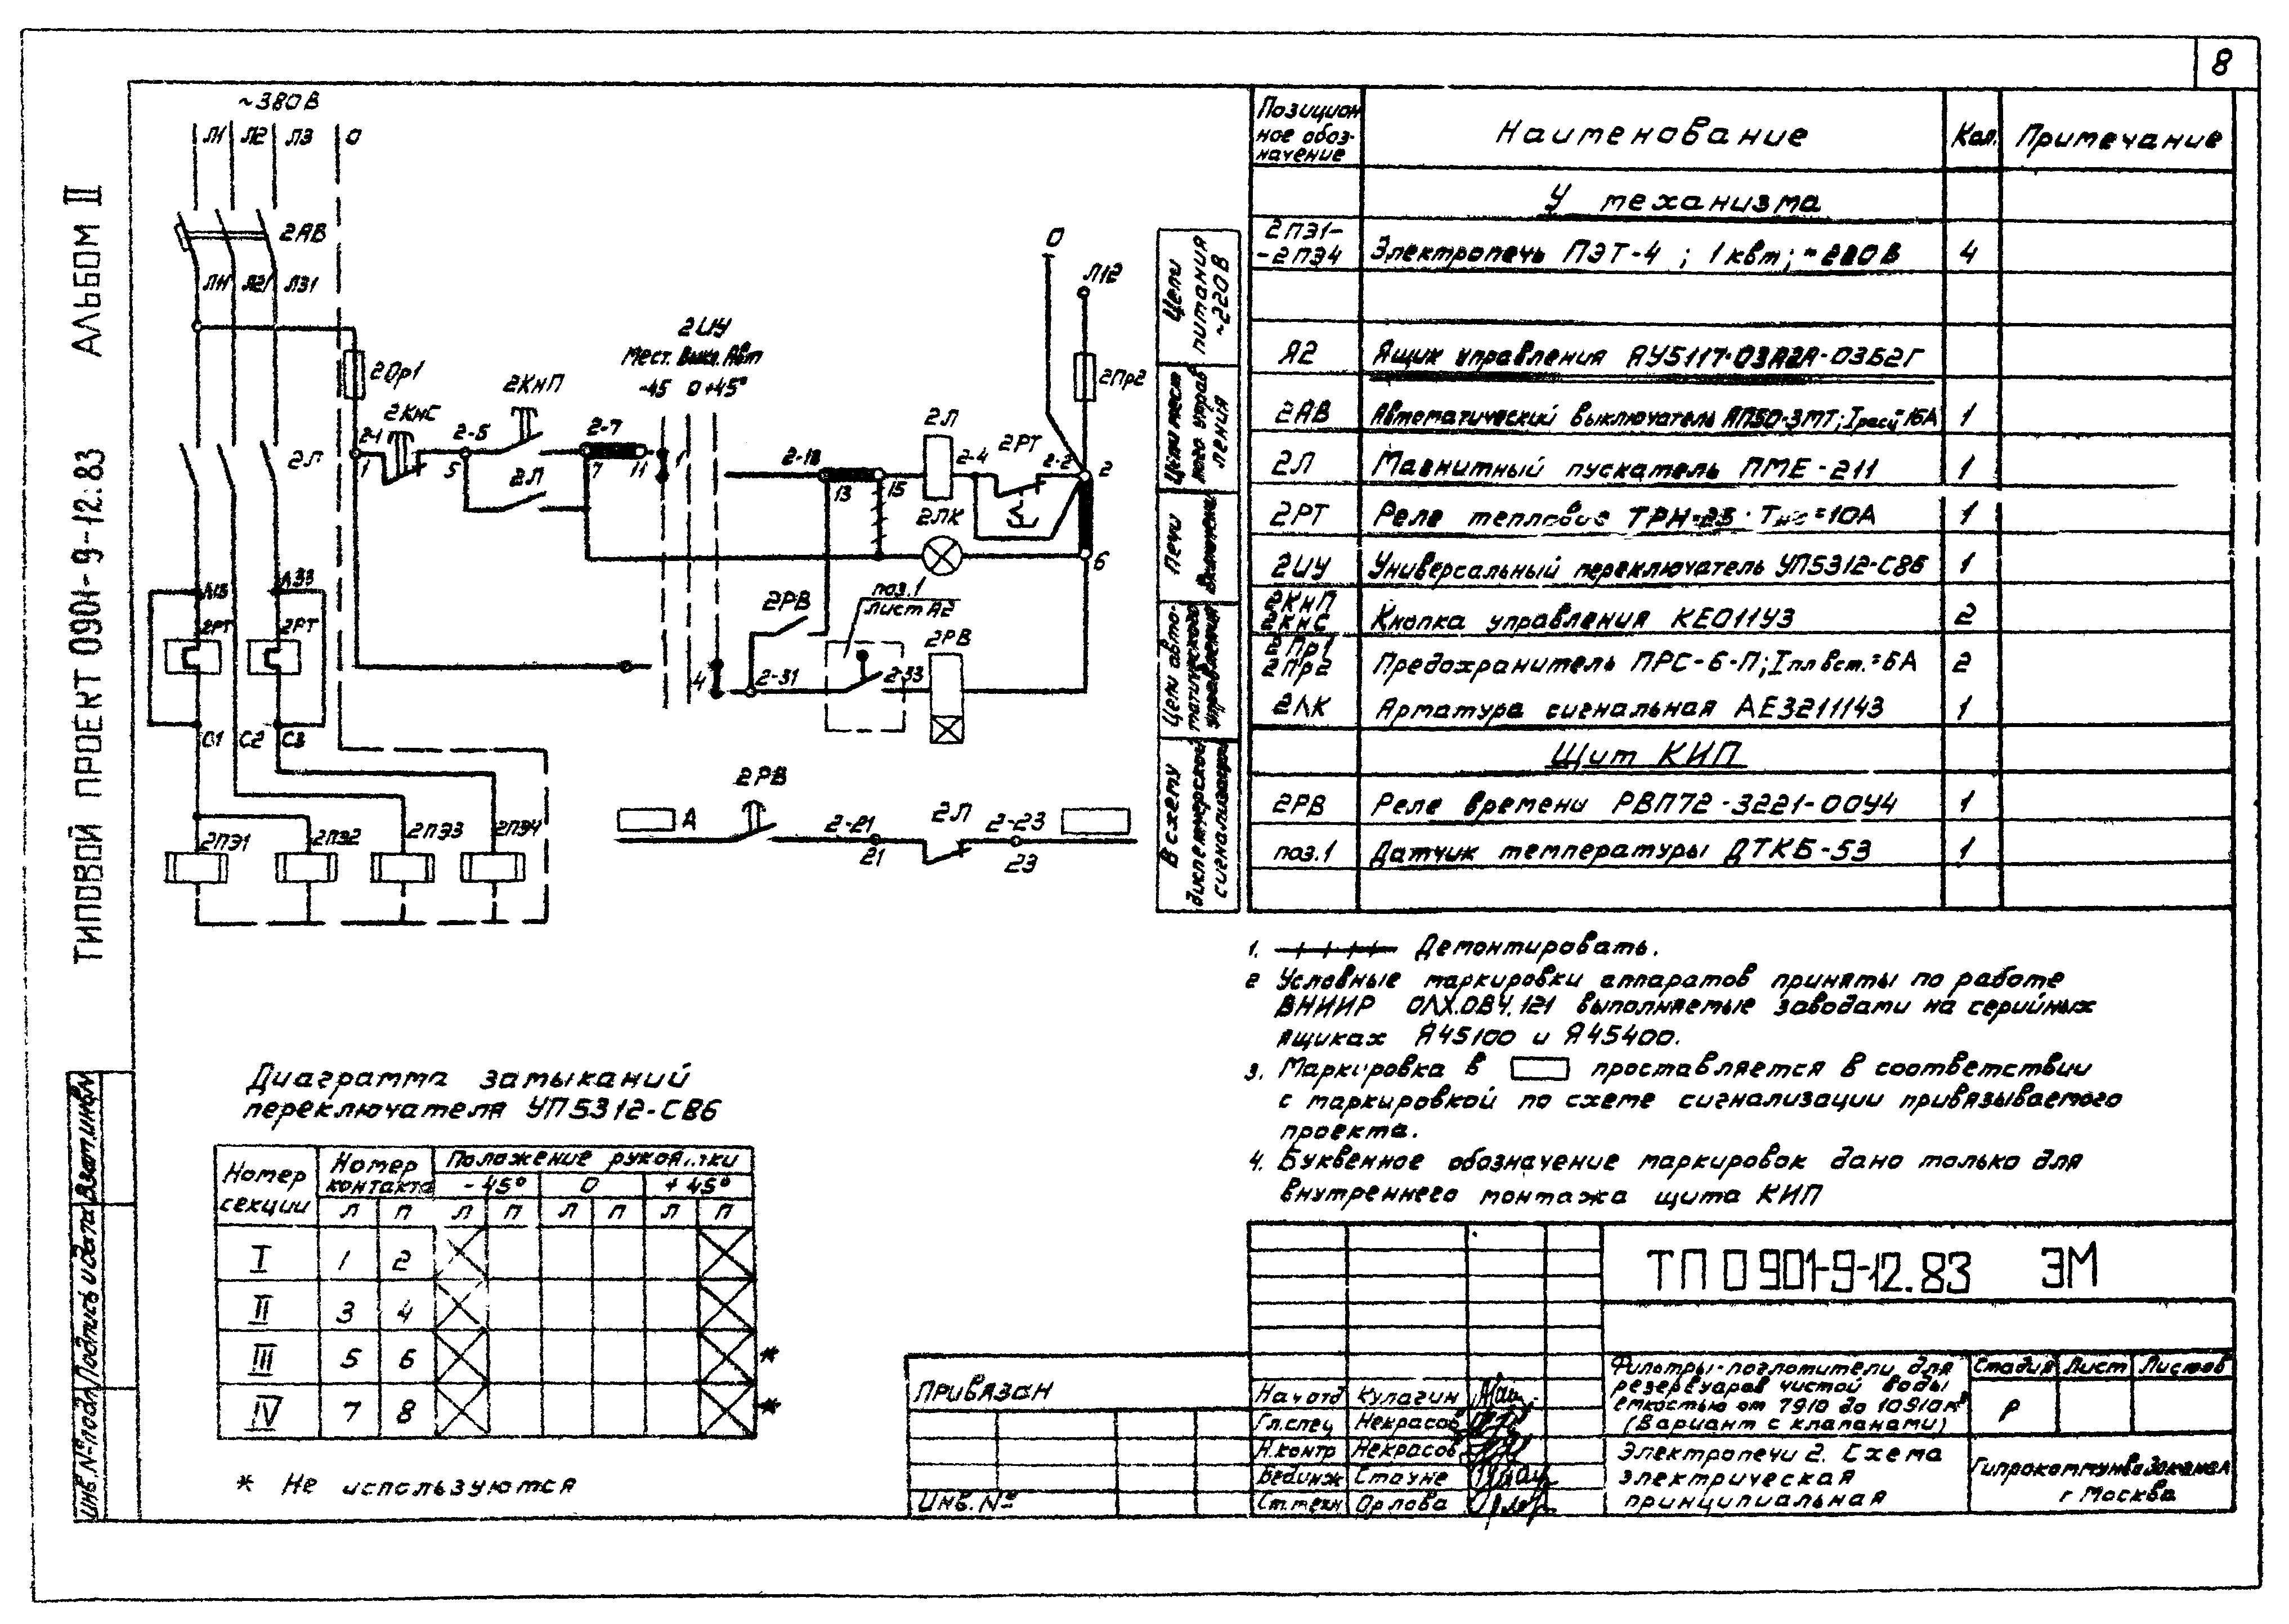 8
ТИПОВОЙ ПРОЕКТ 0901-9-12.83 АЛЬБОМ II
~380В
Л1 Л2 Л3 0
2АВ
Л11 Л21 Л31
2Пр1
2КнС
2КнП
2-1
1
2-5
5
2Л
2-7
7
11
2Л
2ИУ
Мест. Выкл. Авт
-45 0 +45°
1
2-13
13
15
2Л
2-4
2РТ
2-2
2
0
Л12
2Пр2
2ЛК
6
Л13
Л33
2РТ
2РТ
С1 С2 С3
поз.1
лист А2
2РВ
2РВ
4
2-31
2-33
2ПЭ1
2ПЭ2
2ПЭ3
2ПЭ4
А
2РВ
2-21
21
2Л
2-23
23
Цепи
питания
~220В
Цепи мест
ного управ
ления
Печи
включены
Цепи авто-
матического
управления
В схему
диспетчерской
сигнализации
Позицион
ное обоз-
начение
Наименование
Кол.
Примечание
У механизма
2ПЭ1-
-2ПЭ4
Электропечь ПЭТ-4 ; 1 квт; ~220В
4
Я2
Ящик управления ЯУ5117-03А2А-03Б2Г
2АВ
Автоматический выключатель АП50-3МТ; Iрасц=16А
1
2Л
Магнитный пускатель ПМЕ-211
1
2РТ
Реле тепловое ТРН-25
=10А
1
2ИУ
Универсальный переключатель УП5312-С86
1
2КнП
2КнС
Кнопка управления КЕ011У3
2
2Пр1
2Пр2
Предохранитель ПРС-6-П; Iпл вст.=6А
2
2ЛК
Арматура сигнальная АЕ3211143
1
Щит КИП
2РВ
Реле времени РВП72-3221-00У4
1
поз.1
Датчик температуры ДТКБ-53
1
1. Демонтировать.
2 Условные маркировки аппаратов приняты по работе
ВНИИР ОЛХ.084.121 выполняемые заводами на серийных
ящиках Я45100 и Я45400.
3. Маркировка в проставляется в соответствии
с маркировкой по схеме сигнализации привязываемого
проекта.
4. Буквенное обозначение маркировок дано только для
внутреннего монтажа щита КИП
Диаграмма замыканий
переключателя УП5312-С86
Номер
секции
Номер
контакта
Положение рукоятки
-45° 0 +45°
Л П Л П Л П Л П
I 1 2
II 3 4
III 5 6 *
IV 7 8 *
* Не используются
Инв.№подл Подпись и дата Взам.инв№
ПРИВЯЗАН
Инв.№
Нач отд Кулагин
Гл.спец Некрасов
Н.контр Некрасов
Вед.инж Стауне
Ст.техн Орлова
ТП 0901-9-12.83 ЭМ
Фильтры-поглотители для
резервуаров чистой воды
емкостью от 7910 до 10910м³
(вариант с клапанами)
Стадия Лист Листов
Р
Электропечи 2. Схема
электрическая
принципиальная
Гипрокоммунводоканал
г Москва